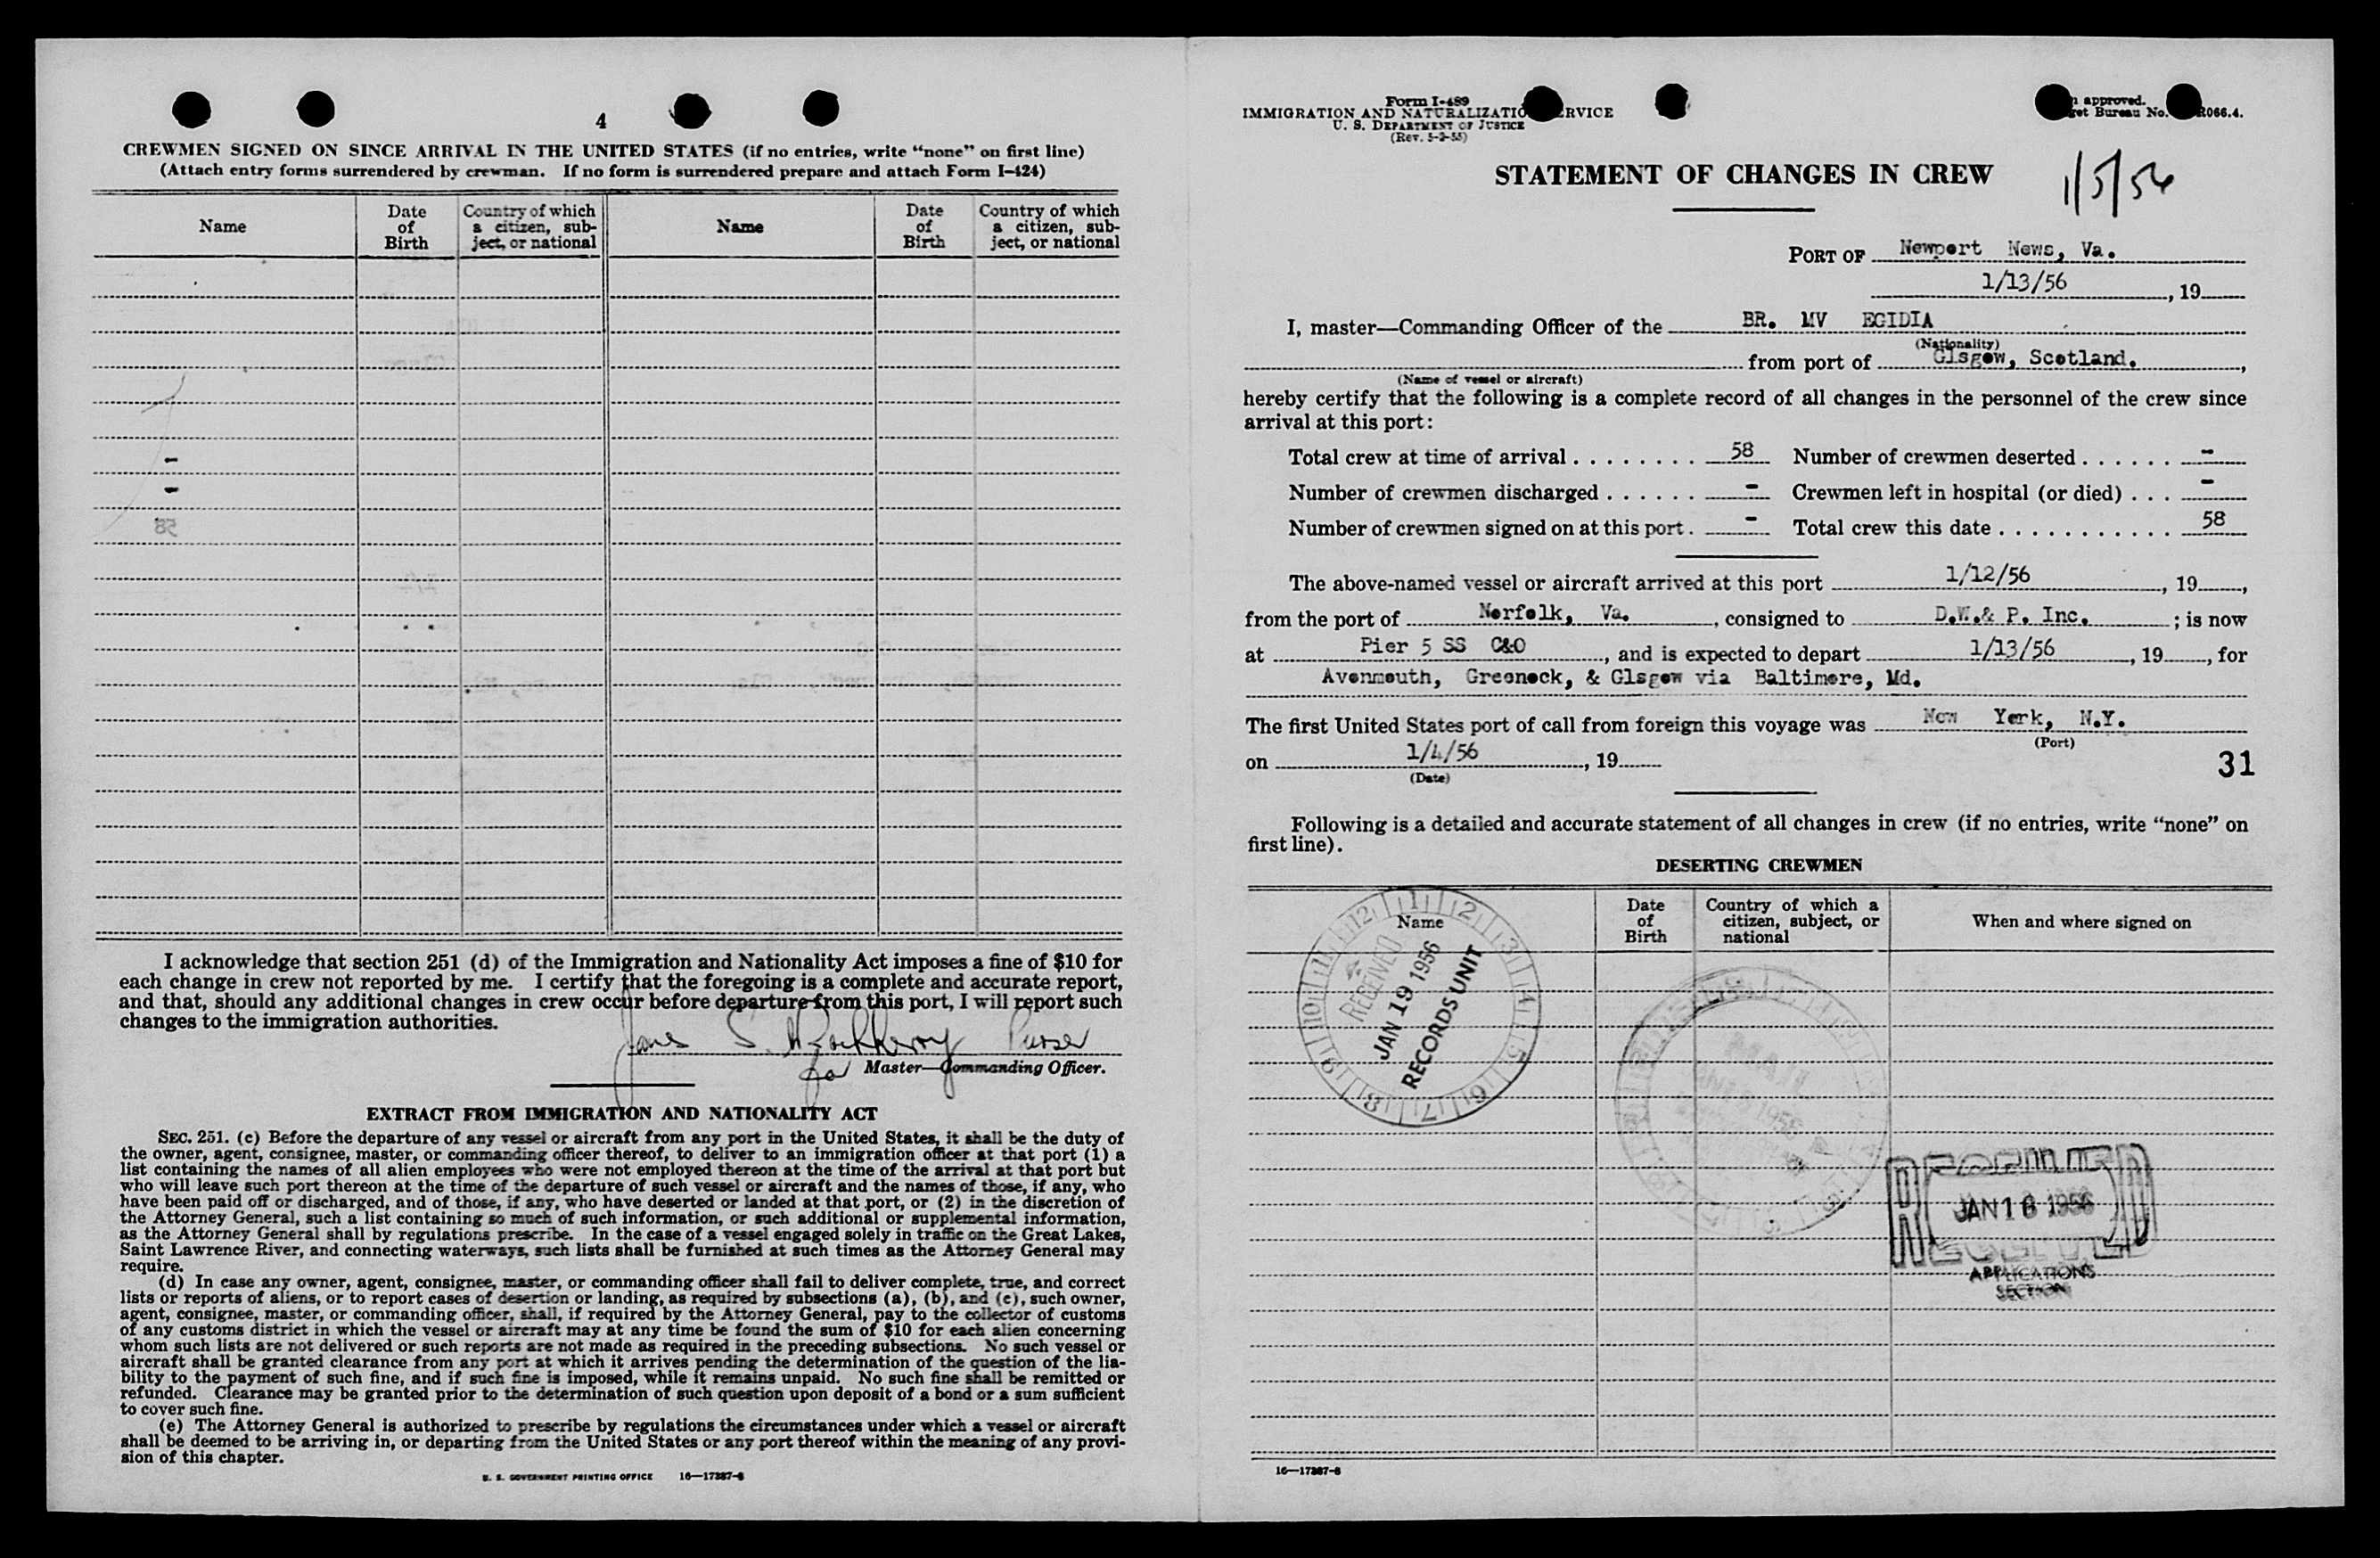 4
CREWMEN SIGNED ON SINCE ARRIVAL IN THE UNITED STATES (if no entries, write “none” on first line)
(Attach entry forms surrendered by crewman. If no form is surrendered prepare and attach Form I-424)
Name Date of Birth Country of which a citizen, subject, or national Name Date of Birth Country of which a citizen, subject, or national
I acknowledge that section 251 (d) of the Immigration and Nationality Act imposes a fine of $10 for
each change in crew not reported by me. I certify that the foregoing is a complete and accurate report,
and that, should any additional changes in crew occur before departure from this port, I will report such
changes to the immigration authorities.
S. Purser
for Master—Commanding Officer.
EXTRACT FROM IMMIGRATION AND NATIONALITY ACT
SEC. 251. (c) Before the departure of any vessel or aircraft from any port in the United States, it shall be the duty of
the owner, agent, consignee, master, or commanding officer thereof, to deliver to an immigration officer at that port (1) a
list containing the names of all alien employees who were not employed thereon at the time of the arrival at that port but
who will leave such port thereon at the time of the departure of such vessel or aircraft and the names of those, if any, who
have been paid off or discharged, and of those, if any, who have deserted or landed at that port, or (2) in the discretion of
the Attorney General, such a list containing so much of such information, or such additional or supplemental information,
as the Attorney General shall by regulations prescribe. In the case of a vessel engaged solely in traffic on the Great Lakes,
Saint Lawrence River, and connecting waterways, such lists shall be furnished at such times as the Attorney General may
require.
(d) In case any owner, agent, consignee, master, or commanding officer shall fail to deliver complete, true, and correct
lists or reports of aliens, or to report cases of desertion or landing, as required by subsections (a), (b), and (c), such owner,
agent, consignee, master, or commanding officer, shall, if required by the Attorney General, pay to the collector of customs
of any customs district in which the vessel or aircraft may at any time be found the sum of $10 for each alien concerning
whom such lists are not delivered or such reports are not made as required in the preceding subsections. No such vessel or
aircraft shall be granted clearance from any port at which it arrives pending the determination of the question of the lia-
bility to the payment of such fine, and if such fine is imposed, while it remains unpaid. No such fine shall be remitted or
refunded. Clearance may be granted prior to the determination of such question upon deposit of a bond or a sum sufficient
to cover such fine.
(e) The Attorney General is authorized to prescribe by regulations the circumstances under which a vessel or aircraft
shall be deemed to be arriving in, or departing from the United States or any port thereof within the meaning of any provi-
sion of this chapter.
U. S. GOVERNMENT PRINTING OFFICE 16—17387-8
Form I-489
IMMIGRATION AND NATURALIZATIO RVICE
U. S. DEPARTMENT OF JUSTICE
(Rev. 5-2-55)
approved.
et Bureau No. R066.4.
STATEMENT OF CHANGES IN CREW
1/5/56
PORT OF Newport News, Va.
1/13/56, 19
I, master—Commanding Officer of the BR. MV EGIDIA
(Nationality)
from port of Glsgow, Scotland.,
(Name of vessel or aircraft)
hereby certify that the following is a complete record of all changes in the personnel of the crew since
arrival at this port:
Total crew at time of arrival . . . . . . . . 58 Number of crewmen deserted . . . . . . -
Number of crewmen discharged . . . . . . - Crewmen left in hospital (or died) . . . -
Number of crewmen signed on at this port . - Total crew this date . . . . . . . . . . . 58
The above-named vessel or aircraft arrived at this port 1/12/56, 19,
from the port of Norfolk, Va., consigned to D.W.& P. Inc. ; is now
at Pier 5 SS C&O, and is expected to depart 1/13/56, 19, for
Avonmouth, Greenock, & Glsgow via Baltimore, Md.
The first United States port of call from foreign this voyage was New York, N.Y.
(Port)
on 1/4/56, 19
(Date)
31
Following is a detailed and accurate statement of all changes in crew (if no entries, write “none” on
first line).
DESERTING CREWMEN
Name Date of Birth Country of which a citizen, subject, or national When and where signed on
12 1 2 3 4 5 6 7 8 9 10 11
RECEIVED
JAN 19 1956
RECORDS UNIT
MAIL
RECEIVED
JAN 16 1956
RECEIVED
APPLICATIONS
SECTION
16—17387-8